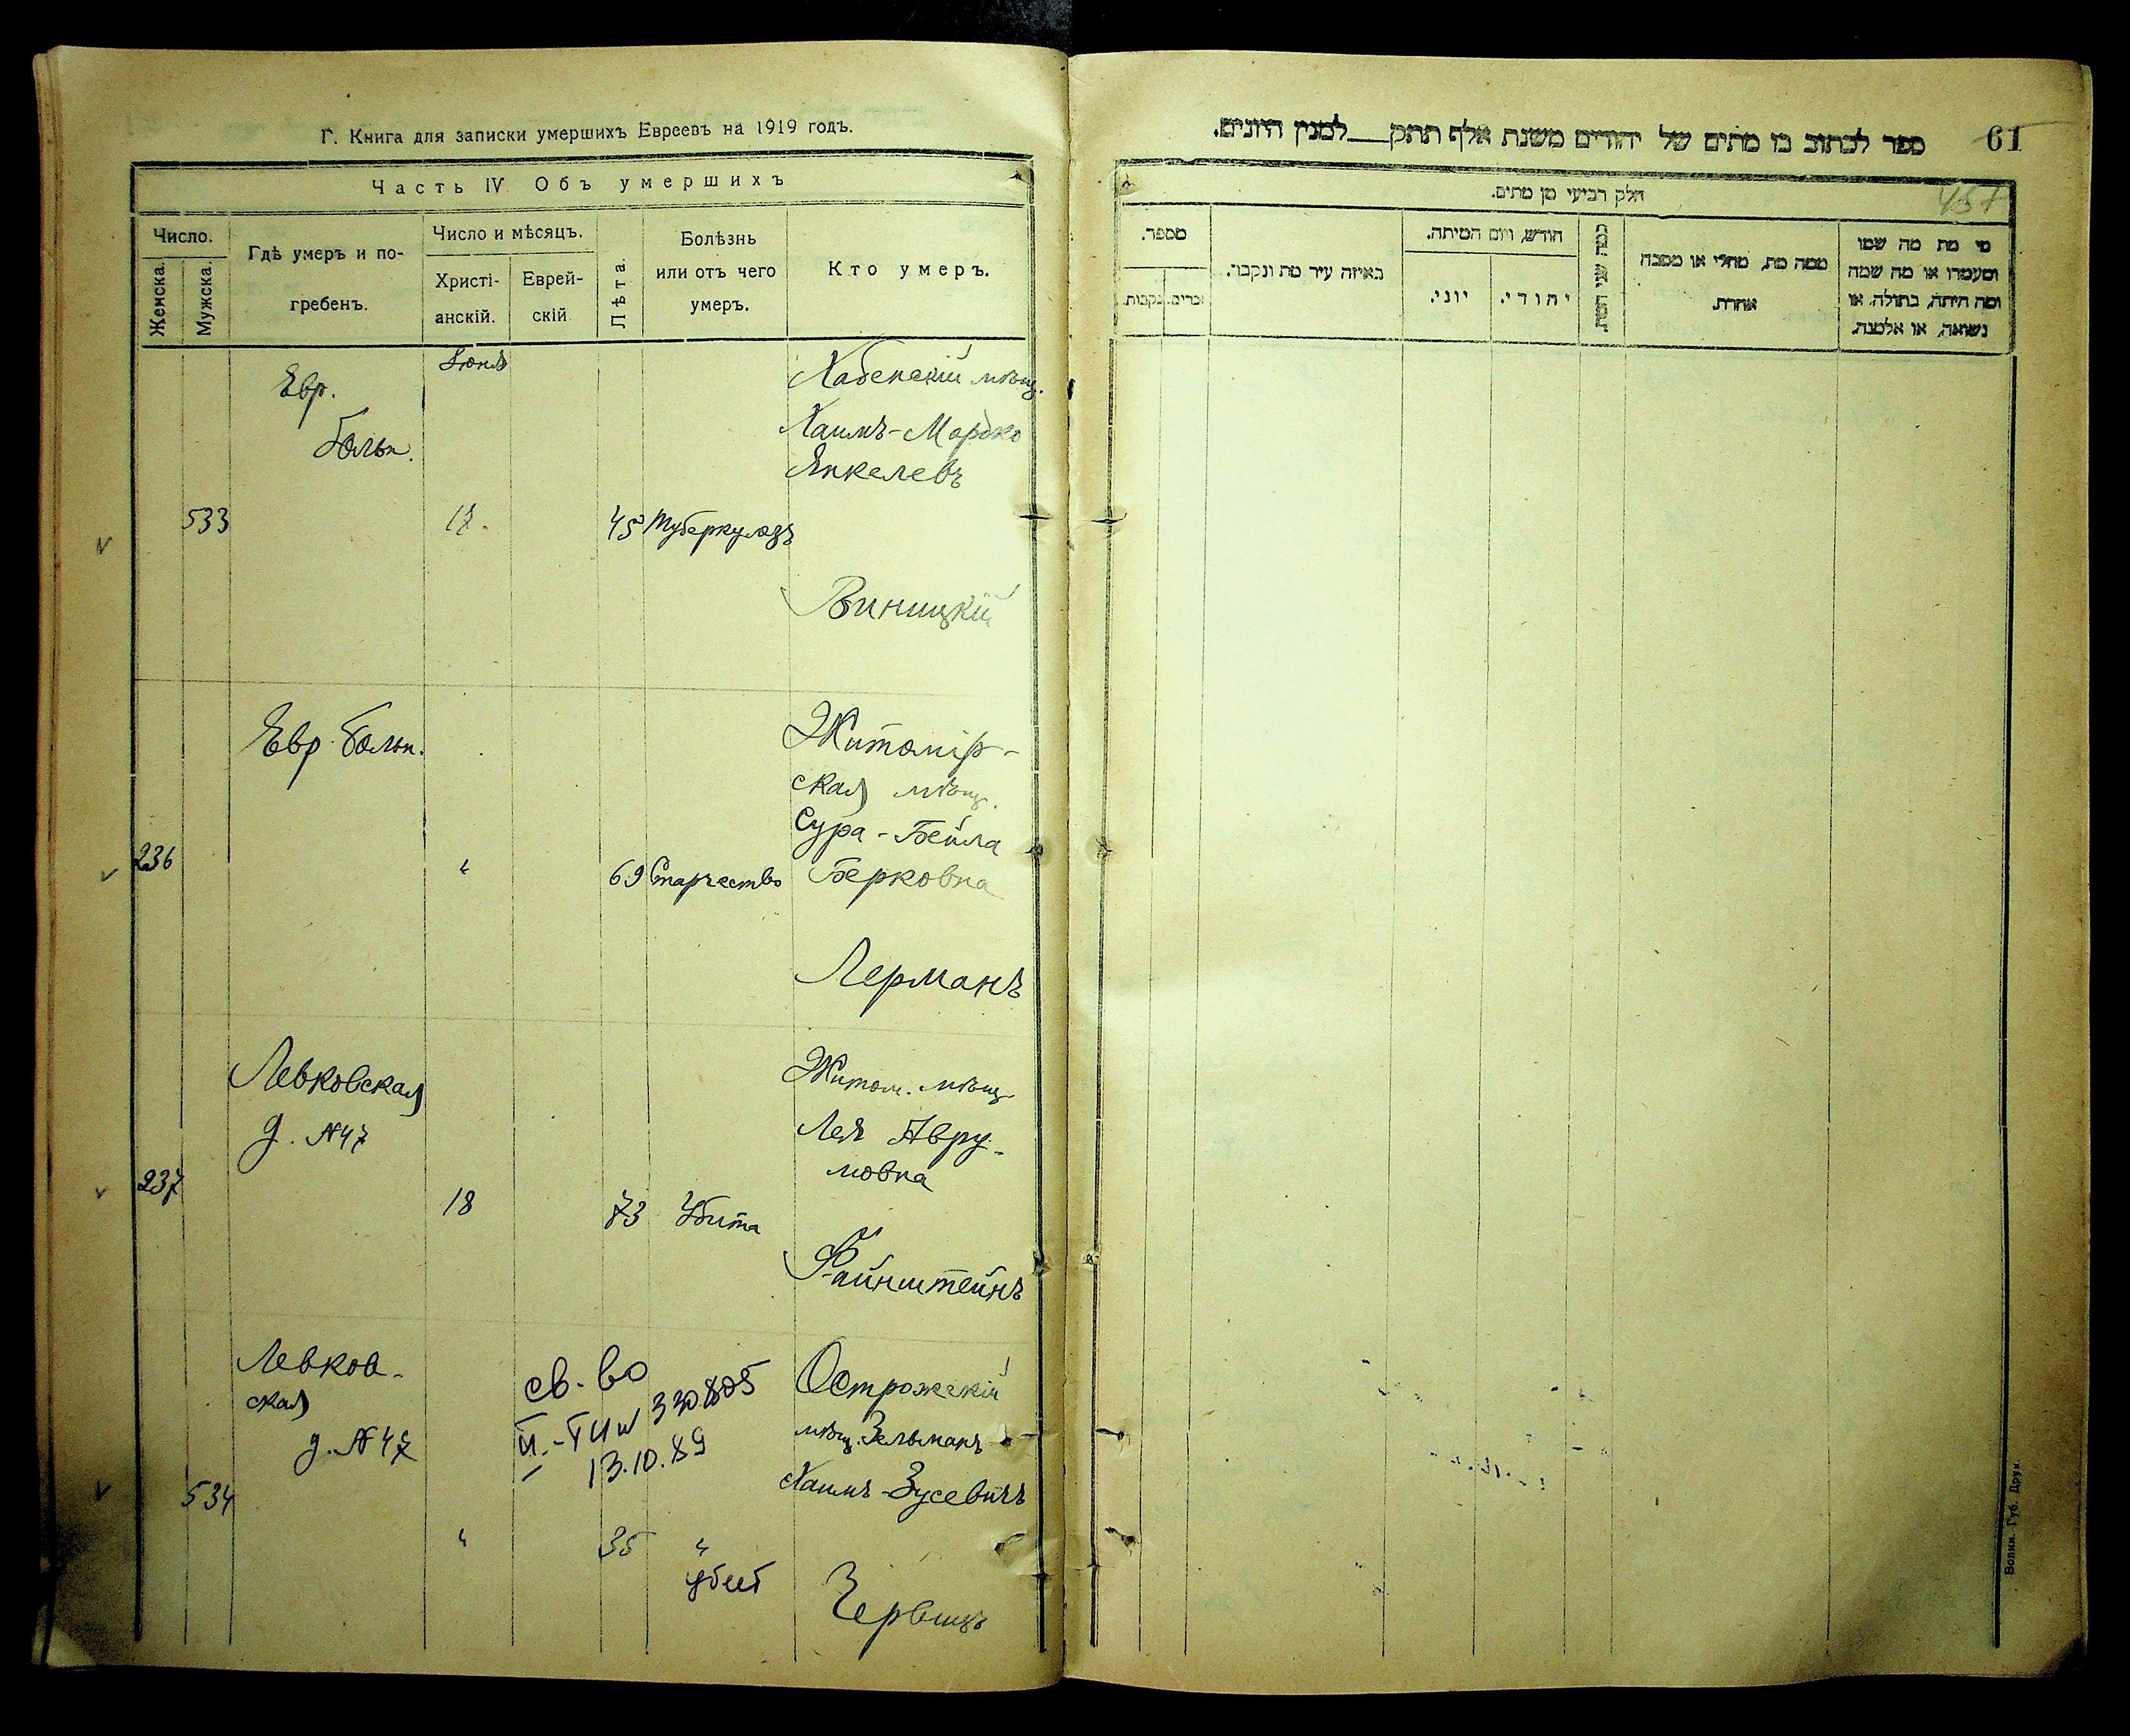 Г. Книга для записки умершихъ Евреевъ на 1919 годъ.
Часть IV Объ умершихъ
Число.
Женска.
Мужска.
Гдѣ умеръ и по-
гребенъ.
Число и мѣсяцъ.
Христі-
анскій.
Еврей-
скій
Лѣта.
Болѣзнь
или отъ чего
умеръ.
Кто умеръ.
Евр.
больн.
Іюня
Хабенскій мѣщ.
Хаимъ-Мордко
Янкелевъ
533
17.
45
Туберкулезъ
Виницкій
Евр. больн.
Житомір-
ская мѣщ.
Сура-Бейла
236
"
69
Старчество
Берковна
Лерманъ
Левковская
д. №47
Житом. мѣщ.
Лея Авру-
мовна
237
18
73
Убита
Файнштейнъ
Левков-
ская
д. №47
св-во
330805
13.10.89
Острожскій
мѣщ. Зельманъ-
Хаимъ-Зусевичъ
534
"
35
"
убит
61
ספר לכתוב בו מתים של יהודים משנת אלף תתק___למנין היונים.
חלק רביעי מן מתים.
מספר.
נקבות.
זכרים.
באיזה עיר מת ונקבר.
חודש, ויום המיתה.
יוני.
יהודי.
ממה מת, מחלי או מסבה
אחרת.
מי מת מה שמו
ומעמדו או מה שמה
ומה היתה, בתולה, או
נשואה, או אלמנה.
Волин. Губ. Друк.